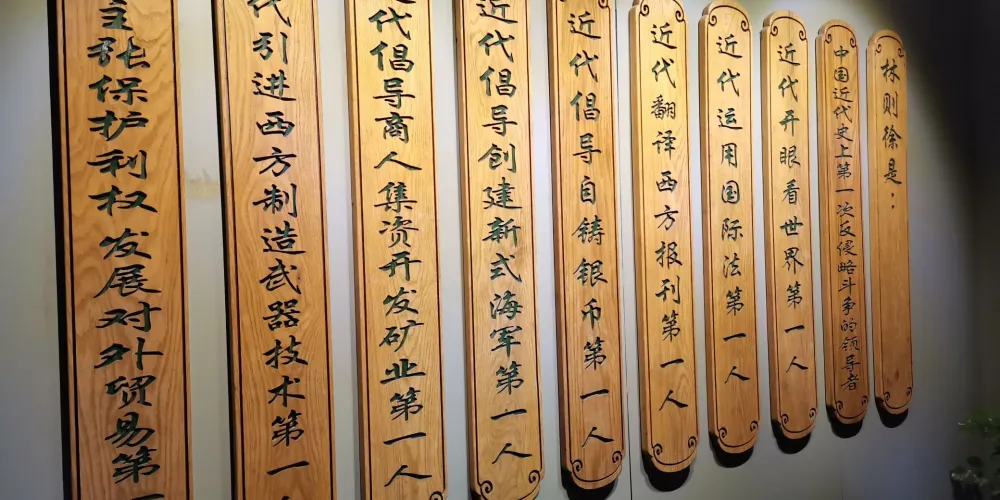 林则徐是：
中国近代史上第一次反侵略斗争的领导者
近代开眼看世界第一人
近代运用国际法第一人
近代翻译西方报刊第一人
近代倡导自铸银币第一人
近代倡导创建新式海军第一人
代倡导商人集资开发矿业第一人
代引进西方制造武器技术第一人
主张保护利权发展对外贸易第一